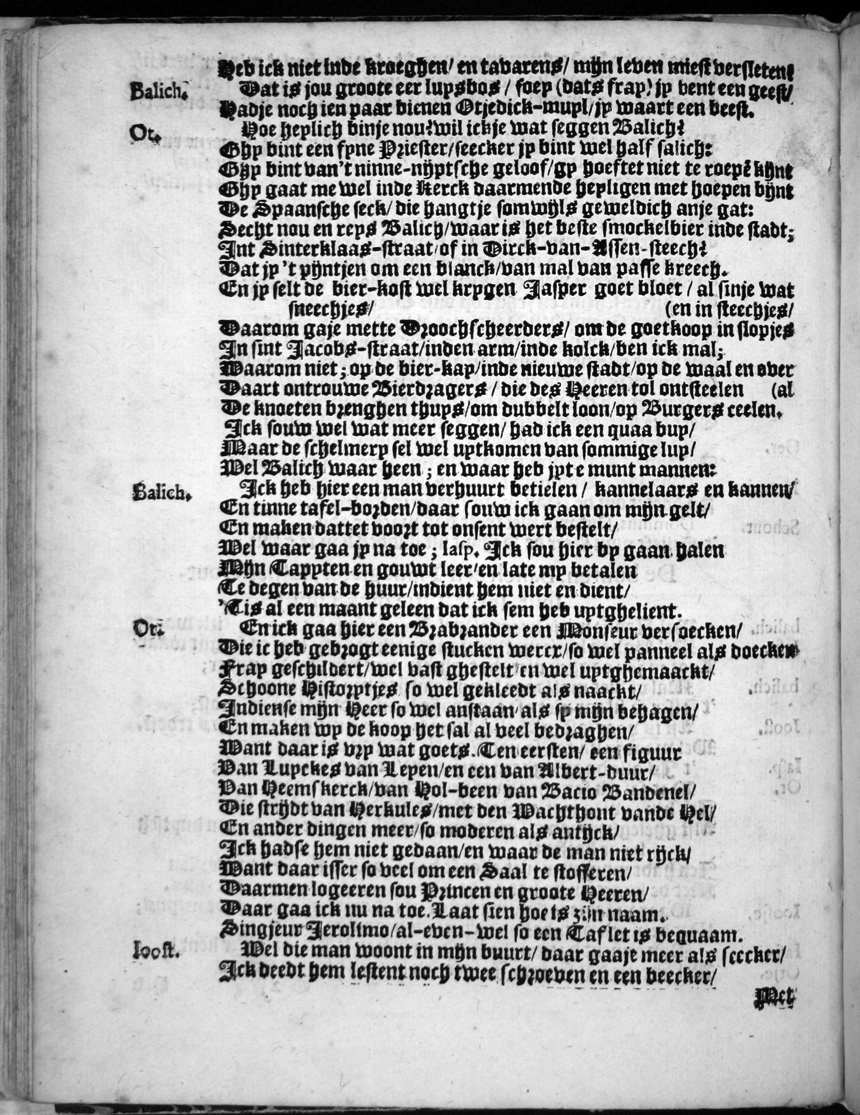 Heb ick niet inde kroeghen/ en tavarens/ mijn leven miest versleten?
Balich. Dat is jou groote eer lupsbos / foep (dats frap) jy bent een geest/
Hadje noch ien paar bienen Otjedick-muyl/jy waart een beest.
Ot. Hoe heylich binje nou? wil ickje wat seggen Balich?
Ghy bint een fyne Priester/seecker jy bint wel half salich:
Ghy bint van't ninne-nijptsche geloof/gy hoeftet niet te roepē kijnt
Ghy gaat me wel inde Kerck daarmende heyligen met hoepen bijnt
De Spaansche seck/ die hangtje somwijls geweldich anje gat:
Secht nou en reys Balich/waar is het beste smockelbier inde stadt;
Int Sinterklaas-straat/of in Dirck-van-Assen-steech?
Dat jy 't pijntjen om een blanck/van mal van passe kreech.
En jy selt de bier-kost wel krygen Jasper goet bloet / al sinje wat
sneechjes/ (en in steechjes/
Daarom gaje mette Droochscheerders/ om de goetkoop in slopjes
In sint Jacobs-straat/inden arm/inde kolck/ben ick mal;
Waarom niet; op de bier-kap/inde nieuwe stadt/op de waal en over
Daart ontrouwe Bierdragers / die des Heeren tol ontsteelen (al
De knoeten brenghen thuys/om dubbelt loon/op Burgers ceelen.
Ick souw wel wat meer seggen/ had ick een quaa buy/
Maar de schelmery sel wel uytkomen van sommige luy/
Wel Balich waar heen; en waar heb jyt e munt mannen:
Balich. Ick heb hier een man verhuurt betielen / kannelaars en kannen/
En tinne tafel-borden/daar souw ick gaan om mijn gelt/
En maken dattet voort tot onsent wert bestelt/
Wel waar gaa jy na toe; Iasp. Ick sou hier by gaan halen
Mijn Tappten en gouwt leer/en late my betalen
Te degen van de huur/indient hem niet en dient/
'Tis al een maant geleen dat ick sem heb uytghelient.
Ot. En ick gaa hier een Brabrander een Monseur versoecken/
Die ic heb gebrogt eenige stucken wercx/so wel panneel als doecken
Frap geschildert/wel vast ghestelt en wel uytghemaackt/
Schoone Historytjes so wel gekleedt als naackt/
Indiense mijn Heer so wel anstaan als sy mijn behagen/
En maken wy de koop het sal al veel bedraghen/
Want daar is vry wat goets. Ten eersten/ een figuur
Van Luyckes van Leyen/en een van Albert-duur/
Van Heemskerck/van Hol-been van Bacio Bandenel/
Die strijdt van Herkules/met den Wachthont vande Hel/
En ander dingen meer/so moderen als antijck/
Ick hadse hem niet gedaan/en waar de man niet rijck/
Want daar isser so veel om een Saal te stofferen/
Daarmen logeeren sou Princen en groote Heeren/
Daar gaa ick nu na toe. Laat sien hoe is zijn naam.
Singjeur Jerolimo/al-even-wel so een Taflet is bequaam.
Ioost. Wel die man woont in mijn buurt/ daar gaaje meer als seecker/
Ick deedt hem lestent noch twee schroeven en een beecker/
Met